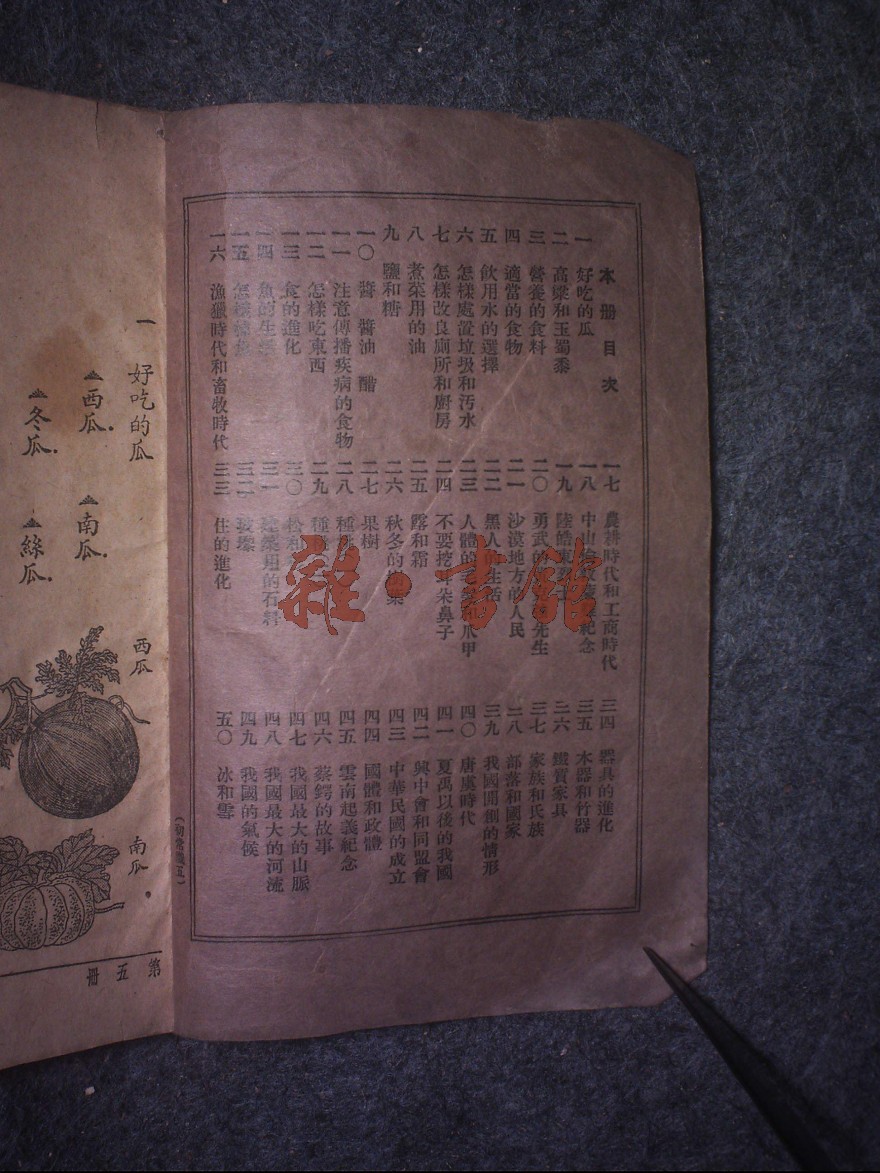 本册目次
一 好吃的瓜
二 高粱和玉蜀黍
三 營養的食料
四 適當的食物
五 飲用水的選擇
六 怎樣處置垃圾和汚水
七 怎樣改良廁所和廚房
八 煮菜用的油
九 鹽和糖
一〇 醬 醬油 醋
一一 注意傳播疾病的食物
一二 怎樣吃東西
一三 食的進化
一四 魚的生活
一五 怎樣
一六 漁獵時代和畜牧時代
一七 農耕時代和工商時代
一八 中山 紀念
一九 陸皓東
二〇 勇武的 先生
二一 沙漠地方的人民
二二 黑人的生活
二三 人體的 和爪甲
二四 不要挖耳朵鼻子
二五 露和霜
二六 秋冬的
二七 果樹
二八 種
二九 種
三〇 松和
三一 建築用的石料
三二 玻璃
三三 住的進化
三四 器具的進化
三五 木器和竹器
三六 鐵質家具
三七 家族和氏族
三八 部落和國家
三九 我國開創的情形
四〇 唐虞時代
四一 夏禹以後的我國
四二 興中會和同盟會
四三 中華民國的成立
四四 國體和政體
四五 雲南起義紀念
四六 蔡鍔的故事
四七 我國最大的山脈
四八 我國最大的河流
四九 我國的氣候
五〇 冰和雪
(初常識五)
雜·書館
一 好吃的瓜
西瓜. 南瓜.
冬瓜. 絲瓜.
西瓜
南瓜
第五册